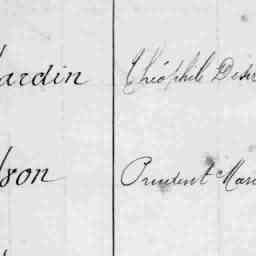 ardin Théophile Desir
son Prudent Mar